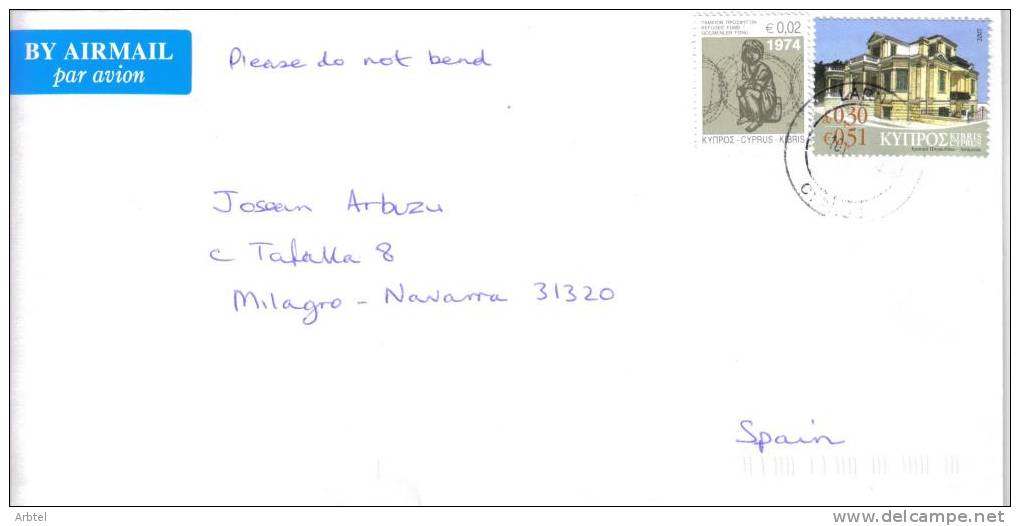 BY AIRMAIL
par avion
Please do not bend
ΤΑΜΕΙΟΝ ΠΡΟΣΦΥΓΩΝ
REFUGEE FUND
GÖÇMENLER FONU
€ 0,02
1974
ΚΥΠΡΟΣ - CYPRUS - KIBRIS
2007
£0.30
€0.51
ΚΥΠΡΟΣ
KIBRIS
CYPRUS
Josean Arbuzu
c Tafalla 8
Milagro - Navarra 31320
Spain
Arbtel
delcampe.net